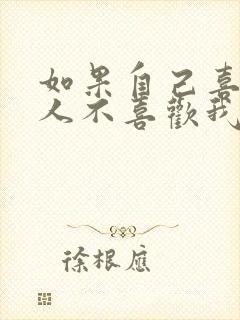 如果自己喜
人不喜歡我
徐根應